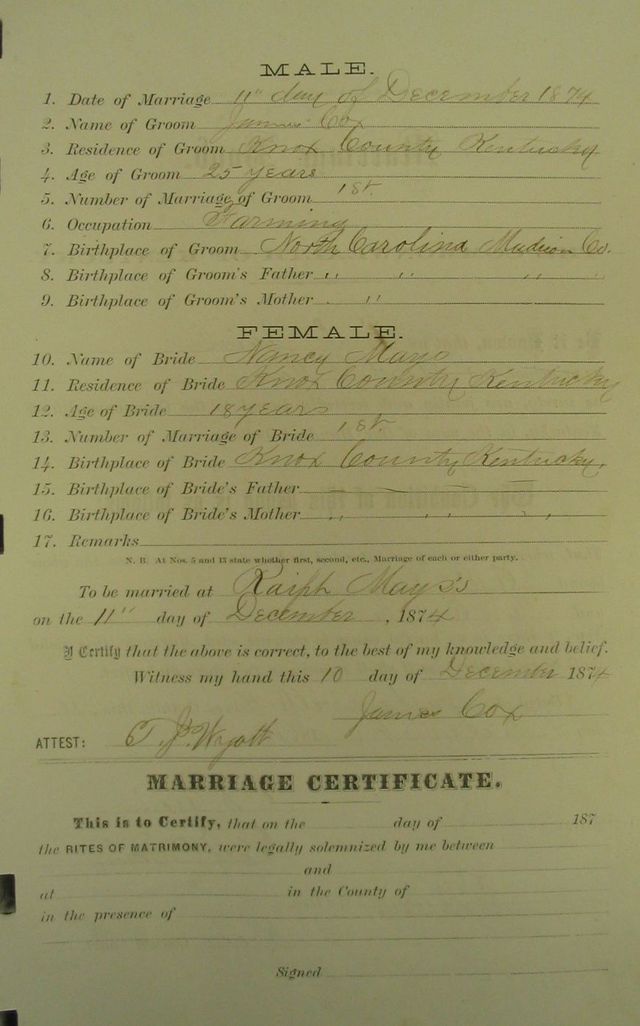 MALE.
1. Date of Marriage 11" day of December 1874
2. Name of Groom James Cox
3. Residence of Groom Knox County Kentucky
4. Age of Groom 25 years
5. Number of Marriage of Groom 1st.
6. Occupation Farming
7. Birthplace of Groom North Carolina Madison Co.
8. Birthplace of Groom's Father " " " "
9. Birthplace of Groom's Mother "
FEMALE.
10. Name of Bride Nancy Mays
11. Residence of Bride Knox County Kentucky
12. Age of Bride 18 years
13. Number of Marriage of Bride 1st.
14. Birthplace of Bride Knox County Kentucky.
15. Birthplace of Bride's Father
16. Birthplace of Bride's Mother " " " "
17. Remarks
N. B. At Nos. 5 and 13 state whether first, second, etc., Marriage of each or either party.
To be married at Ralph Mays's
on the 11" day of December, 1874
I Certify that the above is correct, to the best of my knowledge and belief.
Witness my hand this 10 day of December 1874
James Cox
ATTEST: Wyatt
MARRIAGE CERTIFICATE.
This is to Certify, that on the day of 187
the RITES OF MATRIMONY, were legally solemnized by me between
and
at in the County of
in the presence of
Signed